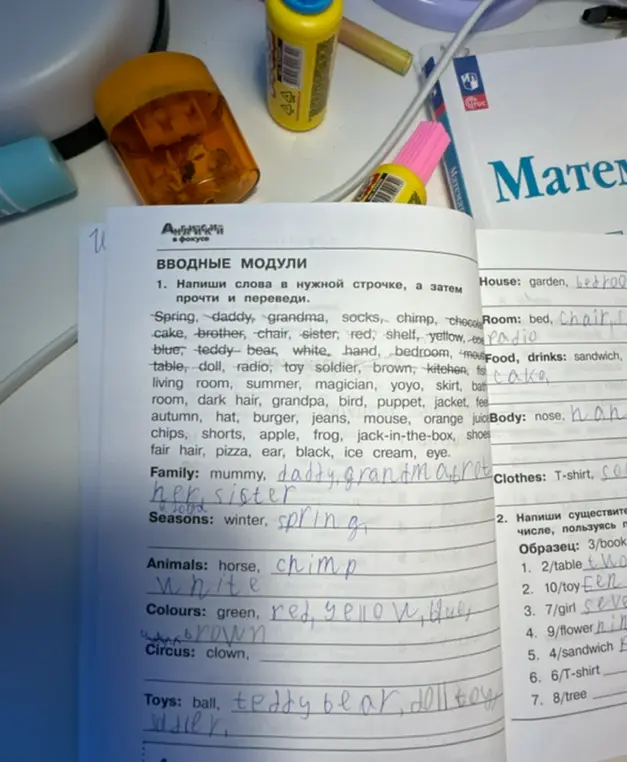 Английский
в фокусе
ВВОДНЫЕ МОДУЛИ
1. Напиши слова в нужной строчке, а затем
прочти и переведи.
Spring, daddy, grandma, socks, chimp,
cake, brother, chair, sister, red, shelf, yellow,
blue, teddy bear, white, hand, bedroom,
table, doll, radio, toy soldier, brown, kitchen,
living room, summer, magician, yoyo, skirt,
room, dark hair, grandpa, bird, puppet, jacket,
autumn, hat, burger, jeans, mouse, orange juice
chips, shorts, apple, frog, jack-in-the-box, shoes
fair hair, pizza, ear, black, ice cream, eye.
Family: mummy, daddy, grandma, brot
her, sister
Seasons: winter, spring,
Animals: horse, chimp
white
Colours: green, red, yellow, blue,
brown
Circus: clown,
Toys: ball, teddy bear, doll toy
House: garden,
Room: bed, chair,
radio
Food, drinks: sandwich,
cake,
Body: nose, han
Clothes: T-shirt,
2. Напиши
числе, пользуясь
Образец: 3/book
1. 2/table two
2. 10/toy
3. 7/girl seve
4. 9/flower nin
5. 4/sandwich
6. 6/T-shirt
7. 8/tree
Матем
ФГОС